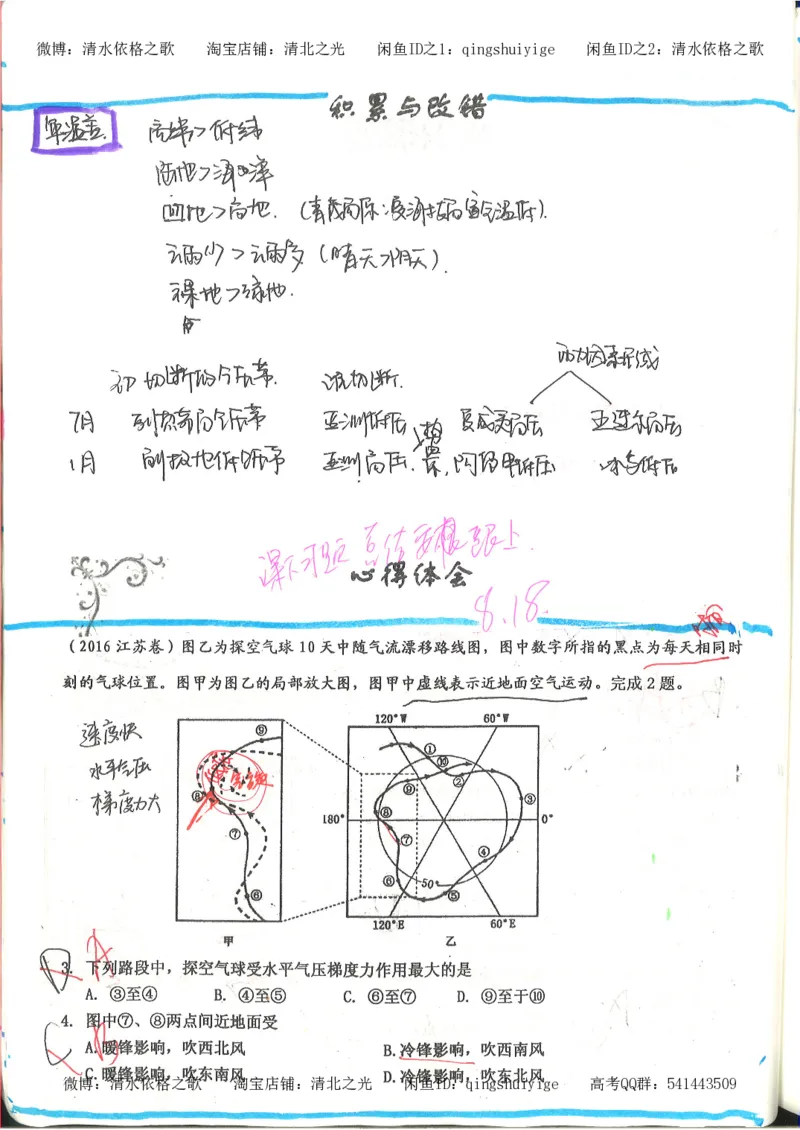 微博：清水依格之歌 淘宝店铺：清北之光 闲鱼ID之1：qingshuiyige 闲鱼ID之2：清水依格之歌
积累与改错
年温差. 高纬>低纬
陆地>海洋
凹地>高地.
云雨少>云雨多（晴天>阴天）.
裸地>绿地.
切断的气压带. 被切断.
7月 副热带高气压带 亚洲低压 夏威夷高压 亚速尔高压
1月 副极地低气压带 亚洲高压. 阿留申低压 冰岛低压
心得体会
8.18.
（2016江苏卷）图乙为探空气球10天中随气流漂移路线图，图中数字所指的黑点为每天相同时
刻的气球位置。图甲为图乙的局部放大图，图甲中虚线表示近地面空气运动。完成2题。
速度快
水平气压
梯度力大
⑨
⑧
⑦
⑥
甲
120°W 60°W
①
⑩
②
⑨
③
⑧
180° 0°
⑦
④
⑥
50°
⑤
120°E 60°E
乙
D A 3. 下列路段中，探空气球受水平气压梯度力作用最大的是
A. ③至④ B. ④至⑤ C. ⑥至⑦ D. ⑨至于⑩
C B 4. 图中⑦、⑧两点间近地面受
A.暖锋影响，吹西北风 B.冷锋影响，吹西南风
C.暖锋影响，吹东南风 D.冷锋影响，吹东北风
微博：清水依格之歌 淘宝店铺：清北之光 闲鱼ID：qingshuiyige 高考QQ群：541443509